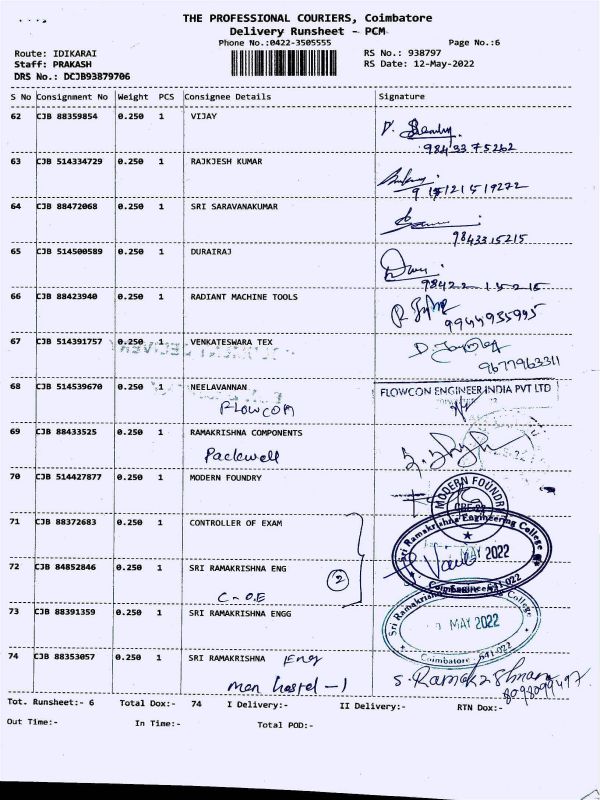 THE PROFESSIONAL COURIERS, Coimbatore
Delivery Runsheet - PCM
Phone No.:0422-3505555
Page No.:6
Route: IDIKARAI
RS No.: 938797
Staff: PRAKASH
RS Date: 12-May-2022
DRS No.: DCJB93879706
S No Consignment No Weight PCS Consignee Details Signature
62 CJB 88359854 0.250 1 VIJAY
63 CJB 514334729 0.250 1 RAJKJESH KUMAR
64 CJB 88472068 0.250 1 SRI SARAVANAKUMAR
9843315215
65 CJB 514500589 0.250 1 DURAIRAJ
66 CJB 88423940 0.250 1 RADIANT MACHINE TOOLS
9944935995
67 CJB 514391757 0.250 1 VENKATESWARA TEX
9677963311
68 CJB 514539670 0.250 1 NEELAVANNAN
FLOWCON ENGINEER INDIA PVT LTD
FLOWCOM
69 CJB 88433525 0.250 1 RAMAKRISHNA COMPONENTS
Packwell
70 CJB 514427877 0.250 1 MODERN FOUNDRY
MODERN FOUNDRY
71 CJB 88372683 0.250 1 CONTROLLER OF EXAM
Sri Ramakrishna Engineering College
MAY 2022
72 CJB 84852846 0.250 1 SRI RAMAKRISHNA ENG
2
C-O.E
Coimbatore - 641-022
73 CJB 88391359 0.250 1 SRI RAMAKRISHNA ENGG
MAY 2022
Coimbatore - 641-022
74 CJB 88353057 0.250 1 SRI RAMAKRISHNA Eng
men hostel - 1
S. Ramakrishnan
8098099497
Tot. Runsheet:- 6 Total Dox:- 74 I Delivery:- II Delivery:- RTN Dox:-
Out Time:- In Time:- Total POD:-